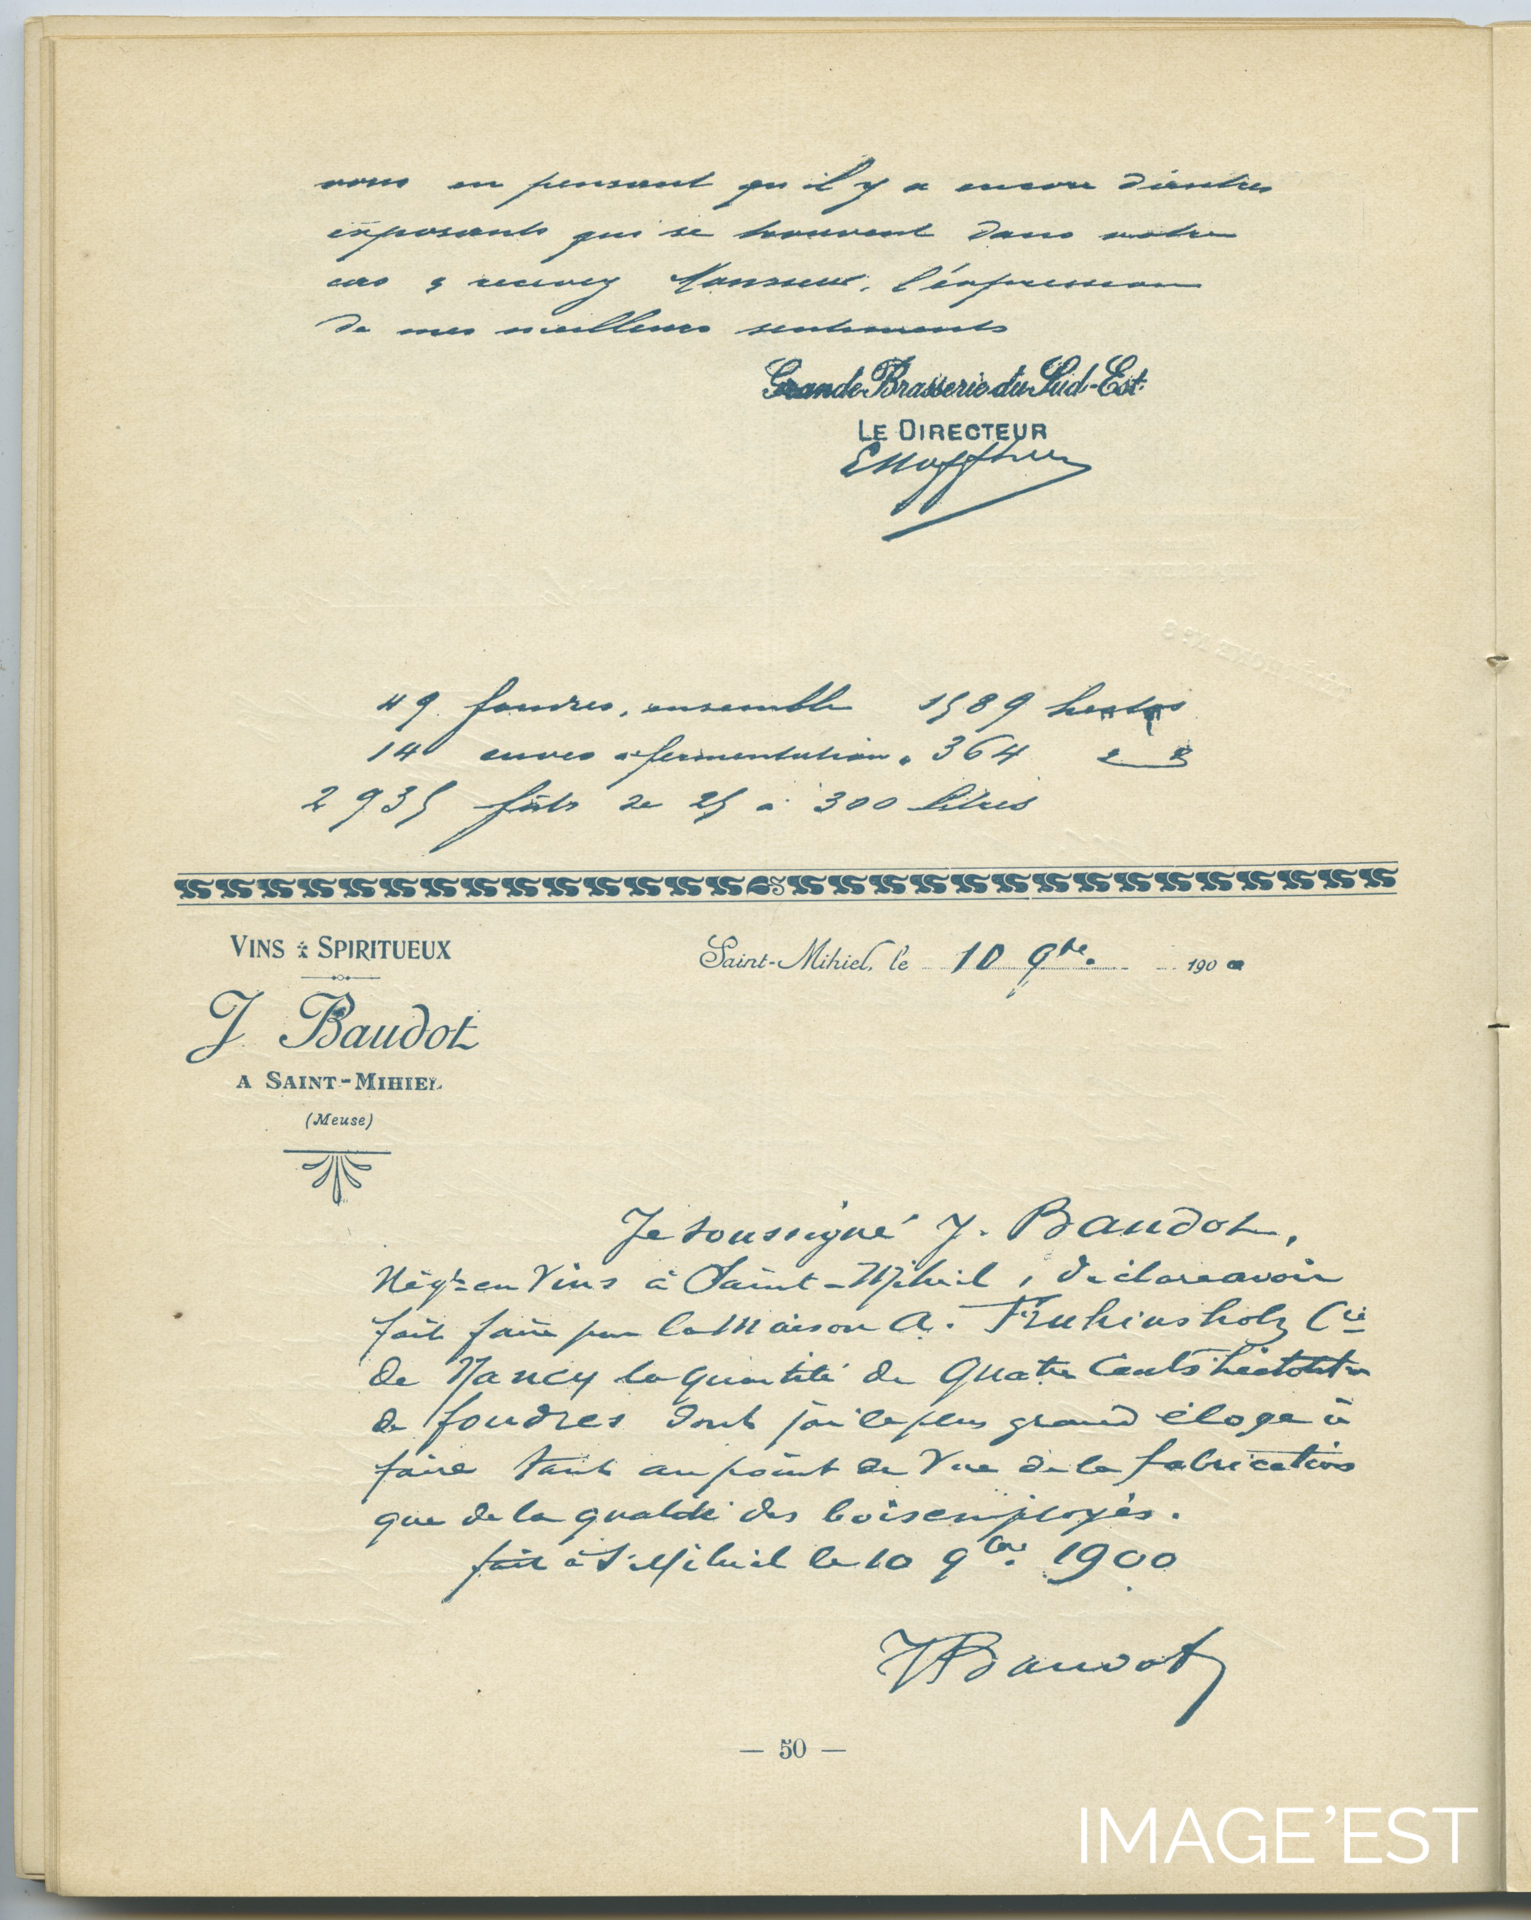 vous en pensant qu'il y a encore d'autres
exposants qui se trouvent dans votre
cas & recevez Monsieur, l'expression
de mes meilleurs sentiments
Grande Brasserie du Sud-Est
LE DIRECTEUR
49 foudres, ensemble 1589 hectos
14 cuves a fermentation " 364
2935 fûts de 25 à 300 litres
VINS & SPIRITUEUX
J. Baudot
A SAINT-MIHIEL
(Meuse)
Saint-Mihiel, le 10 9bre. 1900
Je soussigné J. Baudot,
Négt en Vins à Saint-Mihiel, déclare avoir
fait faire par la Maison A. Fruhinsholz Cie
de Nancy la quantité de Quatre Cents hectolitres
de foudres dont j'ai le plus grand éloge à
faire tant au point de Vue de la fabrication
que de la qualité des bois employés.
fait à St Mihiel le 10 9bre. 1900
J Baudot
— 50 —
IMAGE'EST